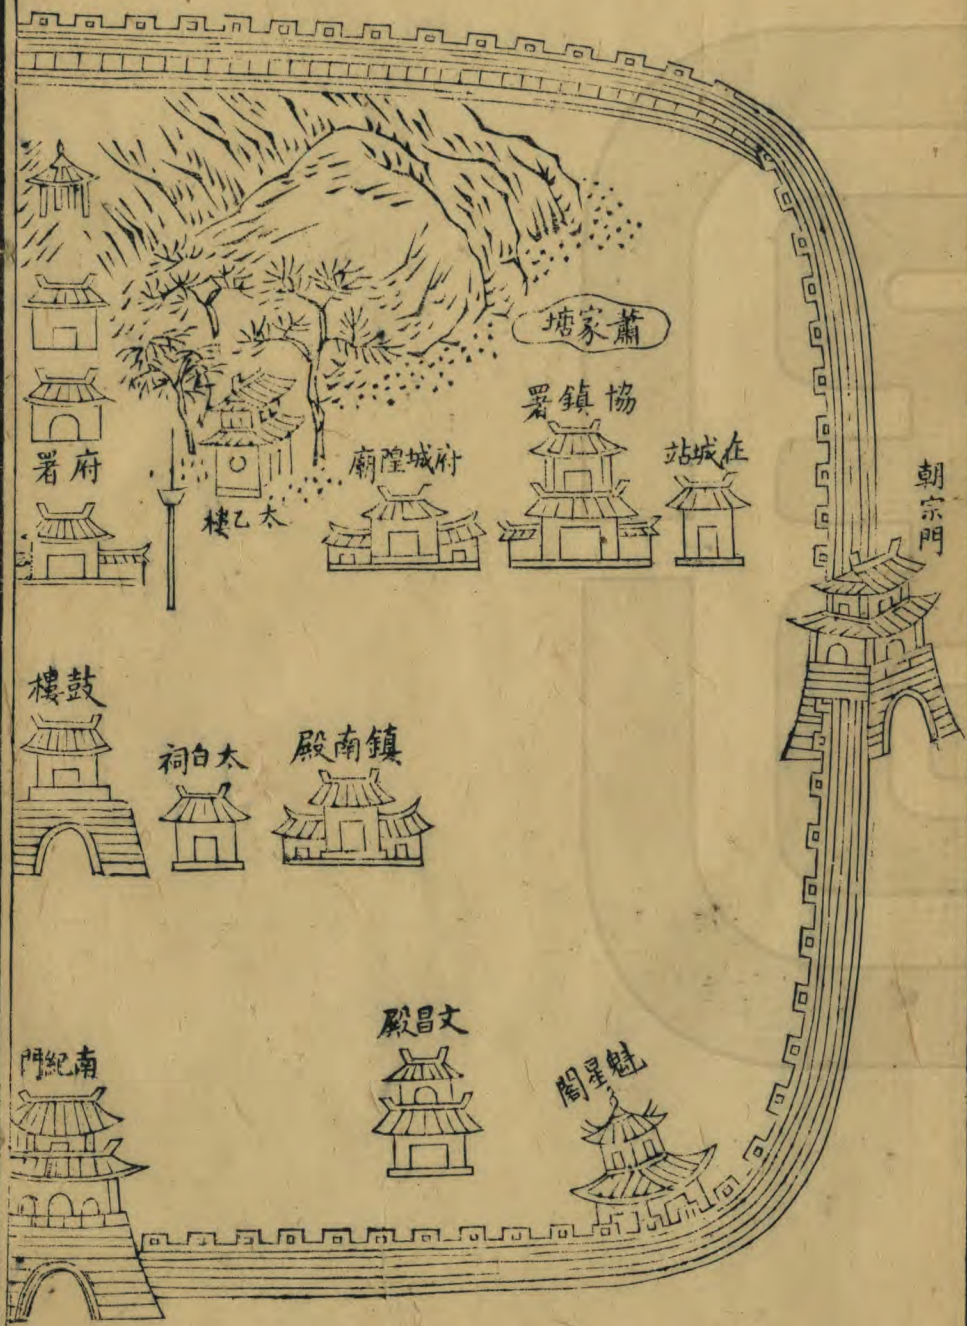 蕭家塘
協鎮署
在城站
府城隍廟
太乙樓
府署
朝宗門
鼓樓
太白祠
鎮南殿
文昌殿
魁星閣
南紀門